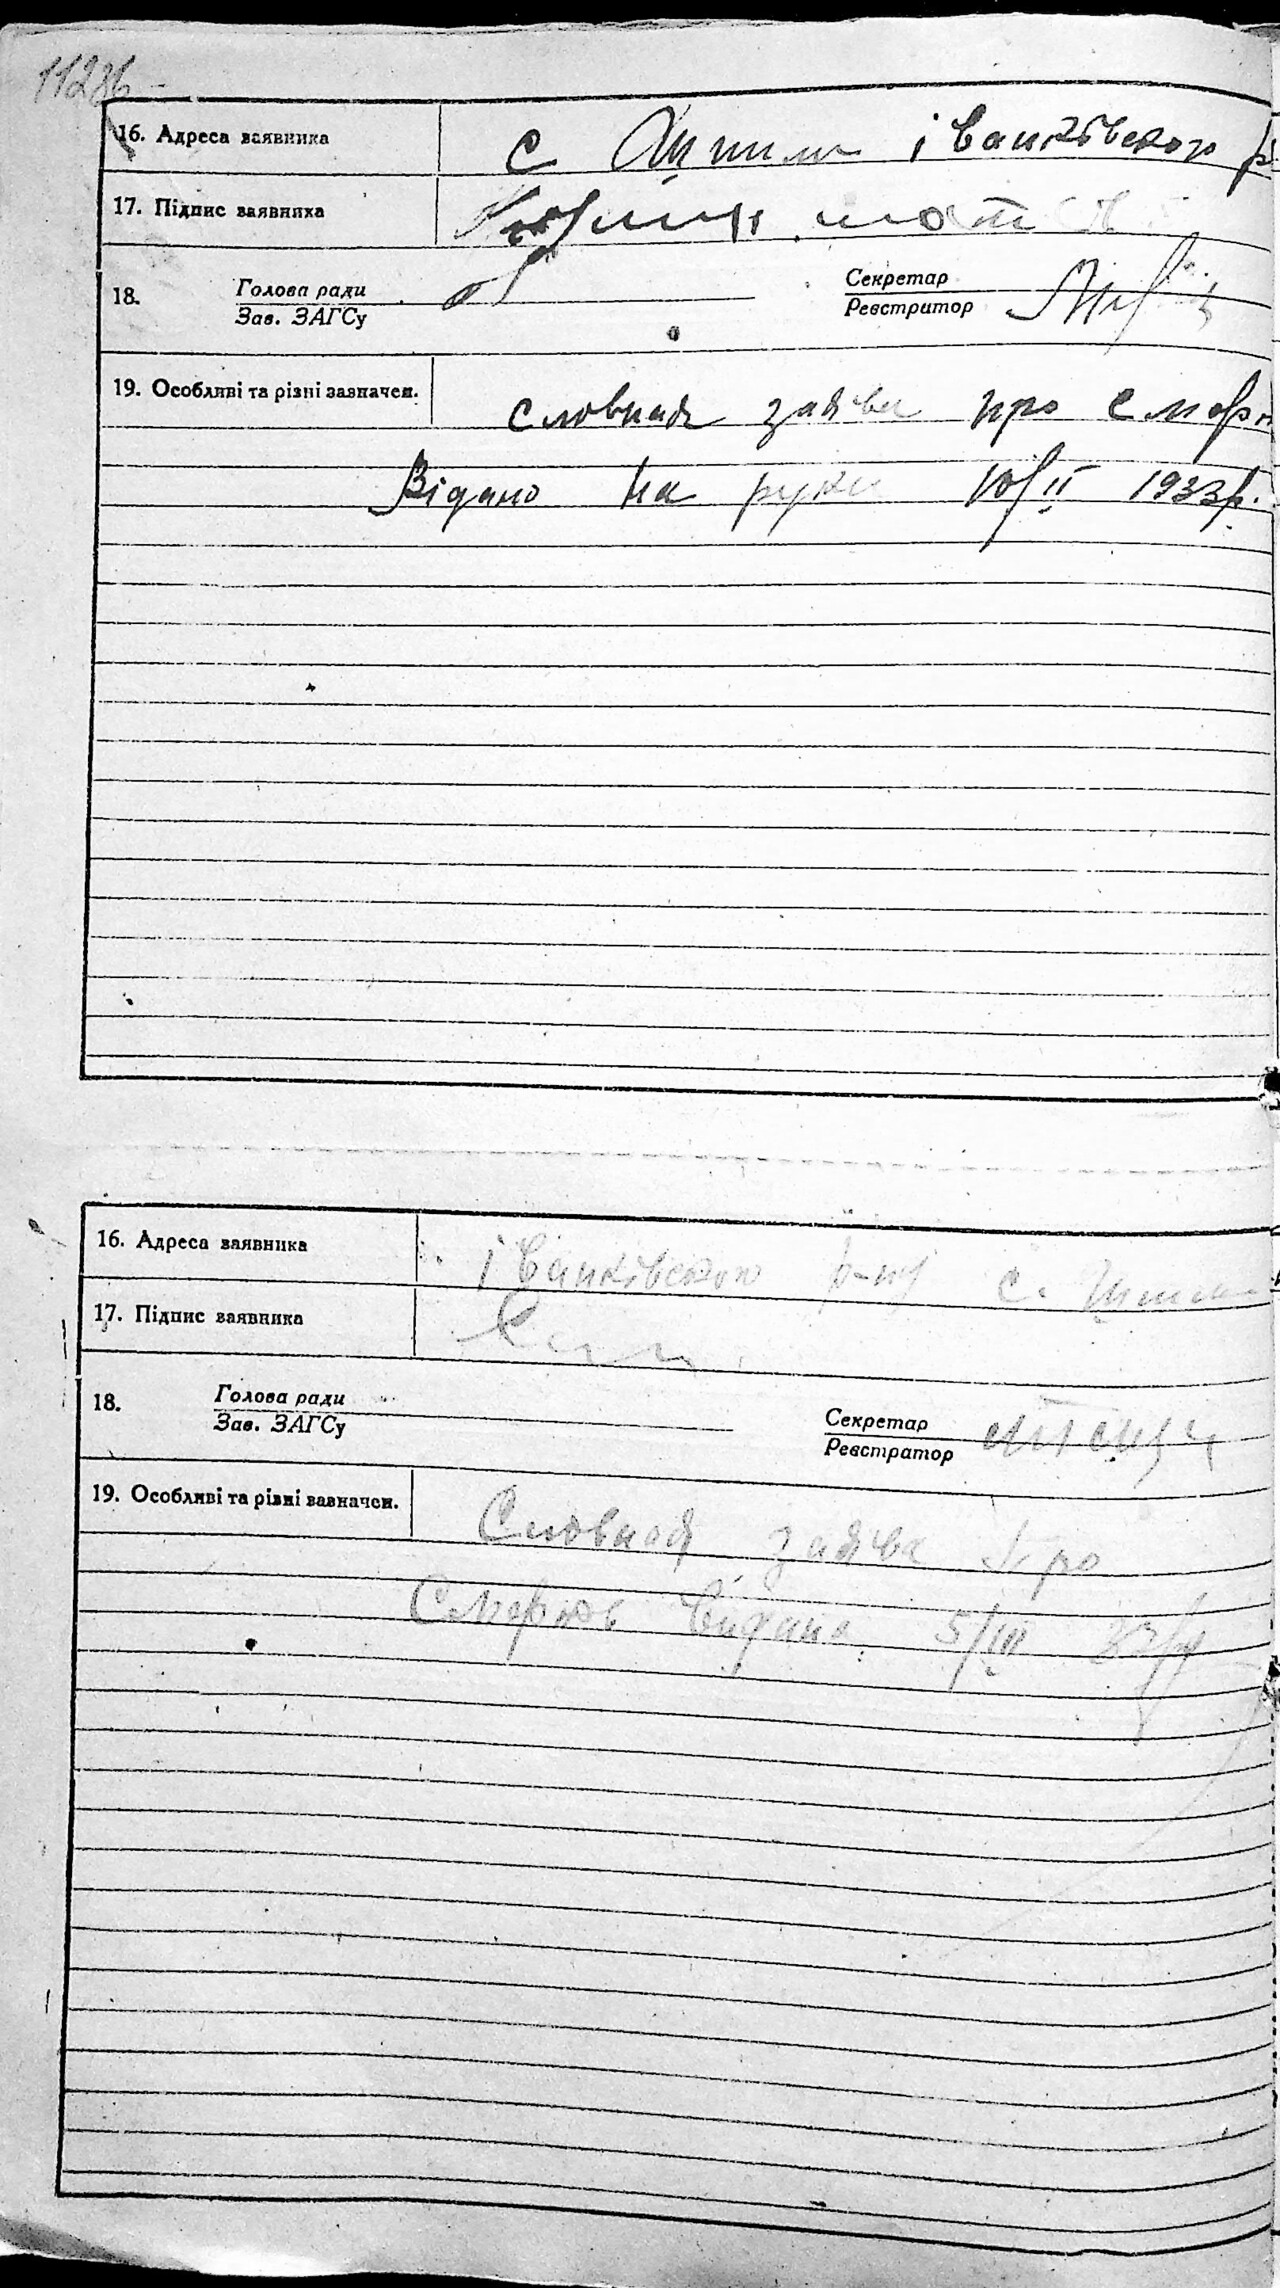 16. Адреса заявника с іванківського р
17. Підпис заявника
18. Голова ради Секретар
Зав. ЗАГСу Реєстратор
19. Особливі та різні зазначен. словная заява про смерт
Відано на руки 10/II 1933р.
16. Адреса заявника іванківського р-ну с.
17. Підпис заявника
18. Голова ради Секретар
Зав. ЗАГСу Реєстратор
19. Особливі та різні зазначен. Словная заява про
Смерть видана 5/III 33р